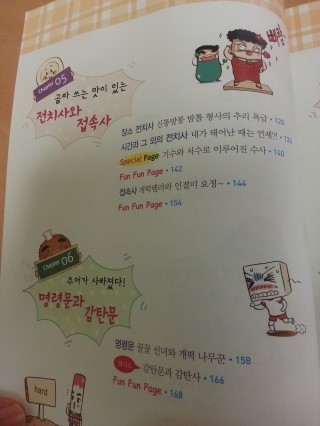 Chapter 05
골라 쓰는 맛이 있는
전치사와
접속사
장소 전치사 신통방통 밤톨 형사의 추리 특급 • 120
시간과 그 외의 전치사 내가 태어난 때는 언제?! • 130
Special Page 기수와 서수로 이루어진 수사 • 140
Fun Fun Page • 142
접속사 개떡렐라와 인절미 요정~ • 144
Fun Fun Page • 154
Chapter 06
주어가 사라졌다!
명령문과
감탄문
명령문 꿀꿀 선녀와 개떡 나무꾼 • 158
감탄문과 감탄사 • 166
Fun Fun Page • 168
hard